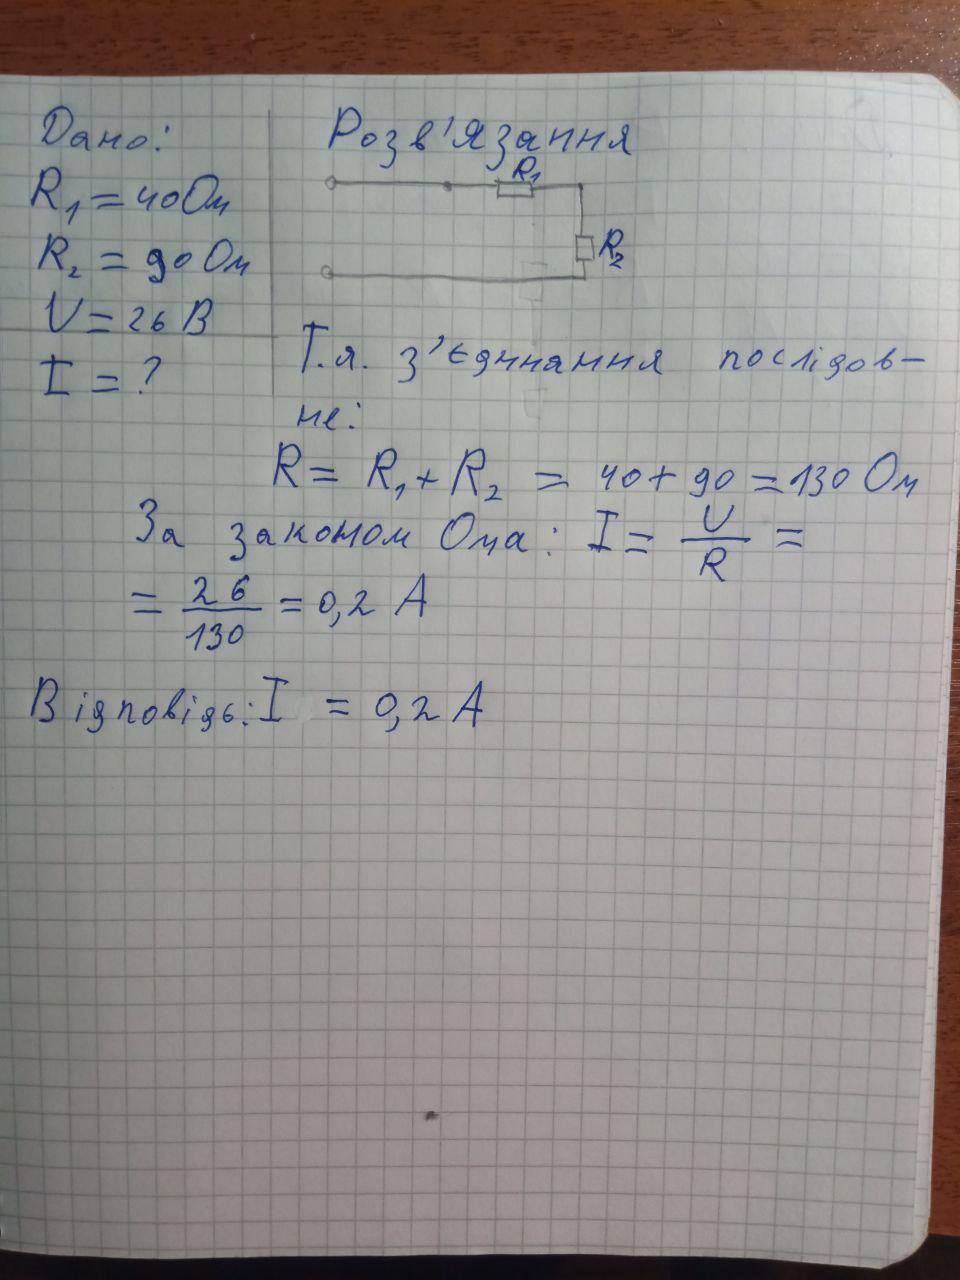 Дано:
R₁ = 40 Ом
R₂ = 90 Ом
U = 26 В
I = ?
Розв'язання
R₁
R₂
Т.я. з'єднання послідов-
не:
R = R₁ + R₂ = 40 + 90 = 130 Ом
За законом Ома: I = U/R =
= 26/130 = 0,2 А
Відповідь: I = 0,2 А